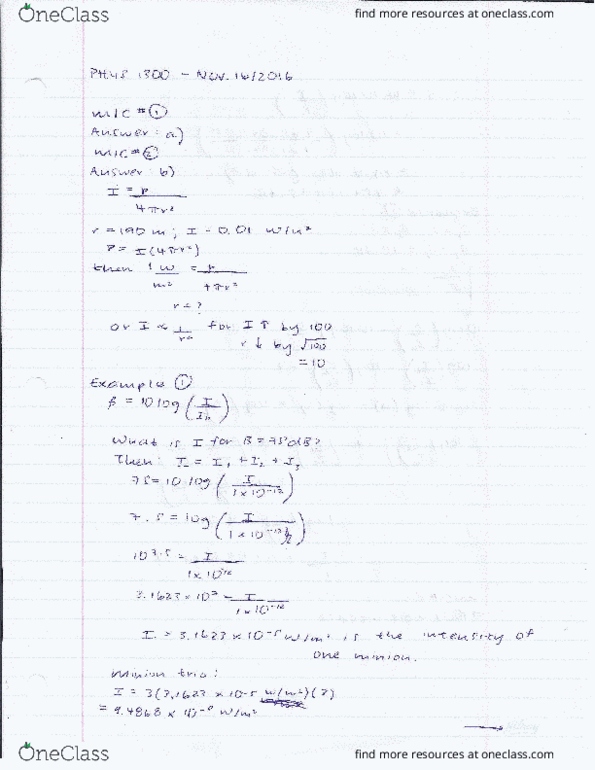 OneClass
find more resources at oneclass.com
PHYS 1300 - Nov. 14/2016
M/C # ①
Answer: a)
M/C # ②
Answer: b)
I = P
4πr²
r = 190 m ; I = 0.01 W/m²
P = I(4πr²)
then 1 W = P
m² 4πr²
r = ?
or I ∝ 1/r² for I ↑ by 100
r ↓ by √100
= 10
Example ①
β = 10 log (I / I₀)
What is I for β = 75 dB?
Then: I = I₁ + I₂ + I₃
75 = 10 log ( I / 1 x 10⁻¹² )
7.5 = log ( I / 1 x 10⁻¹² )
10⁷·⁵ = I
1 x 10⁻¹²
3.1623 x 10⁷ = I
1 x 10⁻¹²
I = 3.1623 x 10⁻⁵ W/m² is the intensity of
one minion.
Minion trio:
I = 3(3.1623 x 10⁻⁵ W/m²)
= 9.4868 x 10⁻⁵ W/m²
OneClass
find more resources at oneclass.com